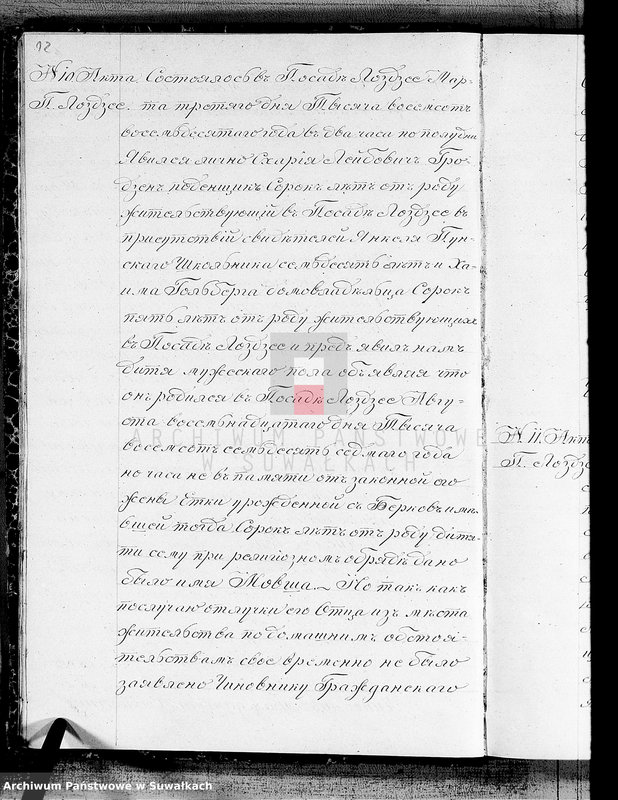 12
№ 10. Акта. Состоялось въ Посадѣ Лоздзее Мар-
П. Лоздзее. та третяго дня Тысяча восемсотъ
восемьдесятаго года въ два часа по полудни
Явился лично Схарія Лейбовичъ Гро-
дзенъ поденщикъ Сорокъ лѣтъ отъ роду
жительствующій въ Посадѣ Лоздзее въ
присутствій свидѣтелей Янкеля Пун-
скаго Школьника семьдесятъ лѣтъ и Ха-
има Гольберга домовладѣльца Сорокъ
пять лѣтъ отъ роду жительствующихъ
въ Посадѣ Лоздзее и предъявилъ намъ
дитя мужескаго пола объявляя что
онъ родился въ Посадѣ Лоздзее Авгу-
ста восемьнадцатаго дня Тысяча
восемсотъ семьдесятъ седмаго года
но часа не въ памяти отъ законной его
жены Етки урожденной съ Берковъ имѣ-
вшей тогда Сорокъ лѣтъ отъ роду дитя-
ти сему при религіозномъ обрядѣ дано
было имя Мовша. Но такъ какъ
послучаю отлучки его Отца изъ мѣста
жительства по домашнимъ обстоя-
тельствамъ свое временно не было
заявлено Чиновнику Гражданскаго
№ 11. Акт
П. Лоздзе
ARCHIWUM PAŃSTWOWE
W SUWAŁKACH
Archiwum Państwowe w Suwałkach